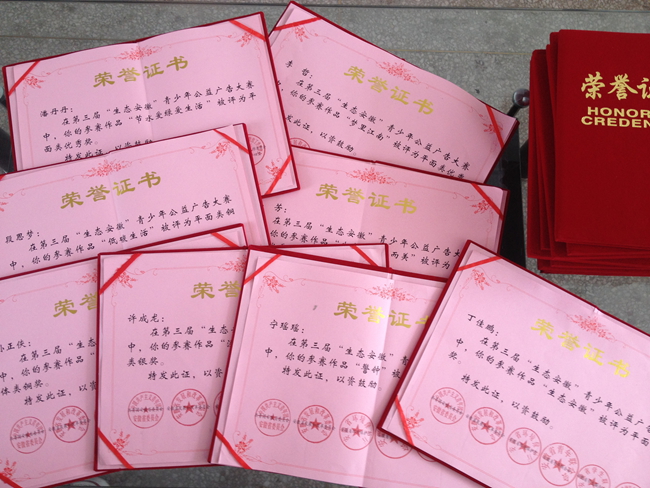 荣誉证书
潘丹丹：
在第三届“生态安徽”青少年公益广告大赛
中，你的参赛作品“节水爱绿爱生活”被评为平
面类优秀奖。
特发此证，以资鼓励。
荣誉证书
李哲：
在第三届“生态安徽”青少年公益广告大赛
中，你的参赛作品“梦里江南”被评为平面类优
特发此证，以资鼓励。
荣誉证书
段思梦：
在第三届“生态安徽”青少年公益广告大赛
中，你的参赛作品“低碳生活”被评为平面类铜
荣誉证书
芳：
在第三届“生态安徽”青少年公益广告大赛
而美”被评为平
荣誉
正侠：
在第三届“生态安徽”
中，你的参赛作品
体类铜奖。
特发此证，以资
荣誉
许成龙：
在第三届“生态安徽”
中，你的参赛作品
类银奖。
特发此证，以资鼓励
荣誉证书
宁瑶瑶：
在第三届“生态安徽”
中，你的参赛作品
奖。
特发此证，以资鼓励
荣誉证书
丁佳鹏：
在第三届“生态安徽”青少年公益广告大赛
中，你的参赛作品“生态安徽”被评为平
奖。
特发此证，以资鼓励。
荣誉证
HONOR
CREDEN